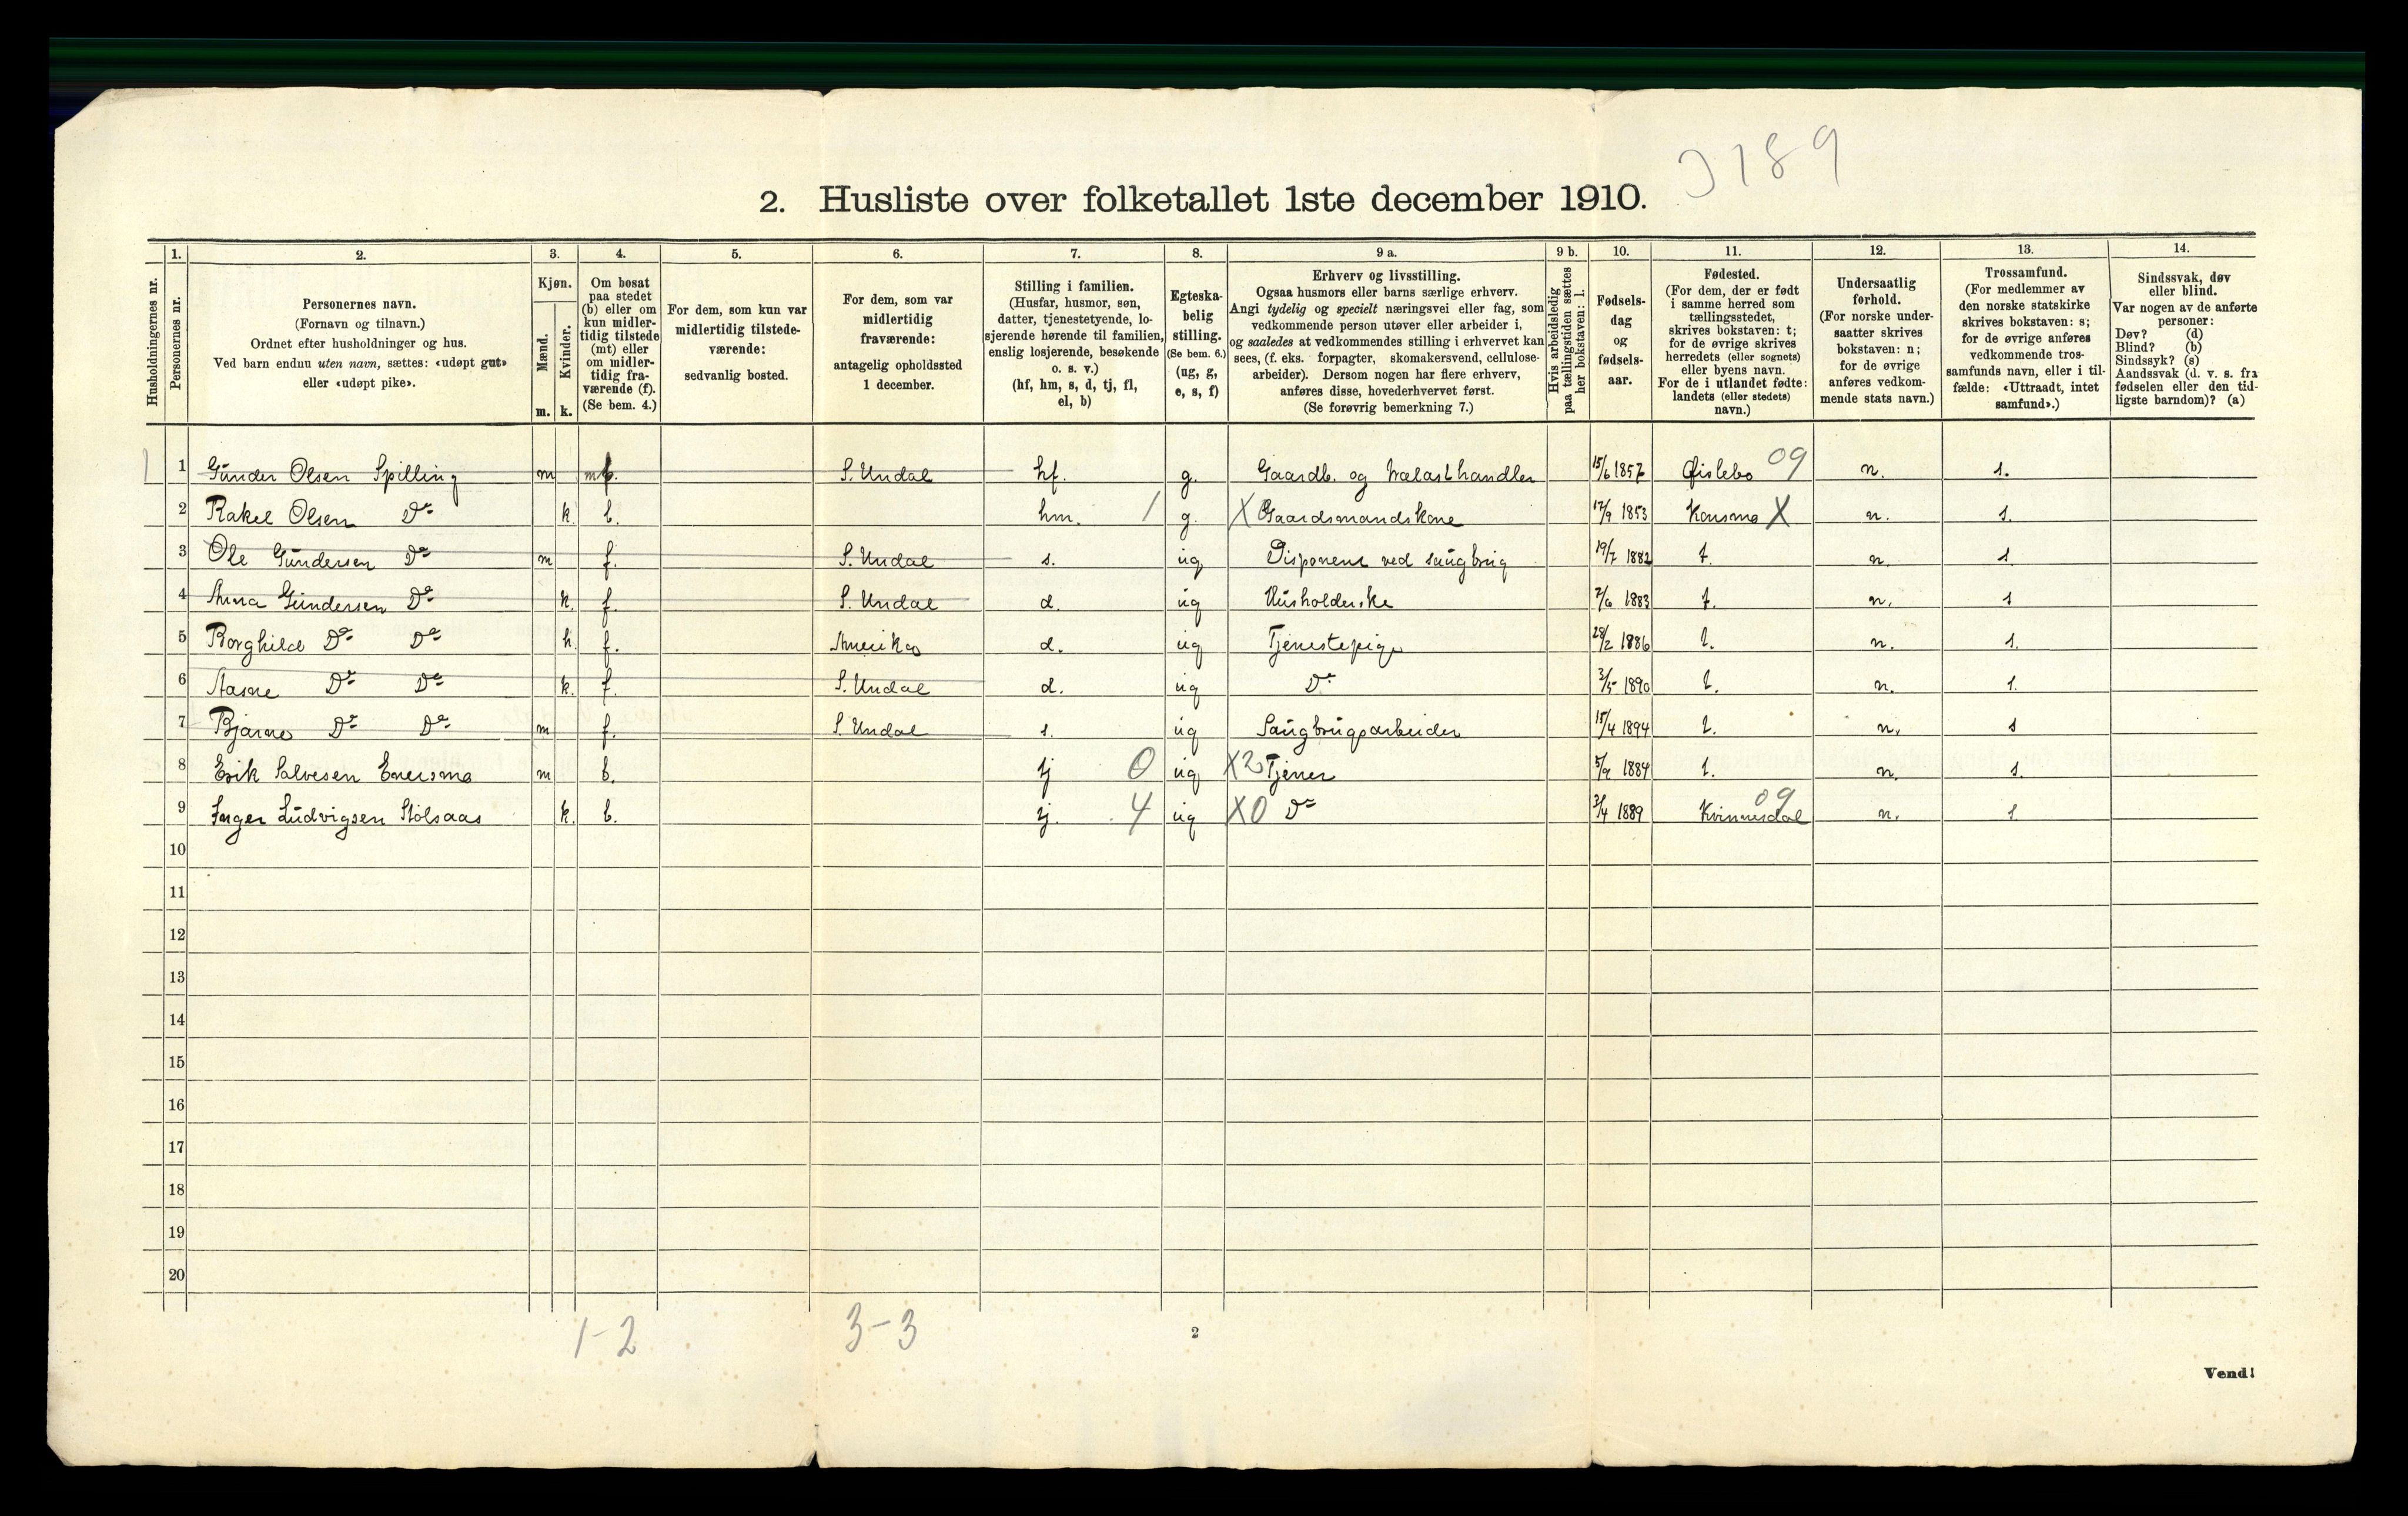 J 189
2. Husliste over folketallet 1ste december 1910.
Husholdningernes nr.
1. Personernes nr.
2.
Personernes navn.
(Fornavn og tilnavn.)
Ordnet efter husholdninger og hus.
Ved barn endnu uten navn, sættes: «udøpt gut»
eller «udøpt pike».
3.
Kjøn.
Mænd. m.
Kvinder. k.
4.
Om bosat
paa stedet
(b) eller om
kun midler-
tidig tilstede
(mt) eller
om midler-
tidig fra-
værende (f).
(Se bem. 4.)
5.
For dem, som kun var
midlertidig tilstede-
værende:
sedvanlig bosted.
6.
For dem, som var
midlertidig
fraværende:
antagelig opholdssted
1 december.
7.
Stilling i familien.
(Husfar, husmor, søn,
datter, tjenestetyende, lo-
sjerende hørende til familien,
enslig losjerende, besøkende
o. s. v.)
(hf, hm, s, d, tj, fl,
el, b)
8.
Egteska-
belig
stilling.
(Se bem. 6.)
(ug, g,
e, s, f)
9 a.
Erhverv og livsstilling.
Ogsaa husmors eller barns særlige erhverv.
Angi tydelig og specielt næringsvei eller fag, som
vedkommende person utøver eller arbeider i,
og saaledes at vedkommendes stilling i erhvervet kan
sees, (f. eks. forpagter, skomakersvend, cellulose-
arbeider). Dersom nogen har flere erhverv,
anføres disse, hovederhvervet først.
(Se forøvrig bemerkning 7.)
9 b.
Hvis arbeidsledig
paa tællingstiden sættes
her bokstaven: l.
10.
Fødsels-
dag
og
fødsels-
aar.
11.
Fødested.
(For dem, der er født
i samme herred som
tællingsstedet,
skrives bokstaven: t;
for de øvrige skrives
herredets (eller sognets)
eller byens navn.
For de i utlandet fødte:
landets (eller stedets)
navn.)
12.
Undersaatlig
forhold.
(For norske under-
saatter skrives
bokstaven: n;
for de øvrige
anføres vedkom-
mende stats navn.)
13.
Trossamfund.
(For medlemmer av
den norske statskirke
skrives bokstaven: s;
for de øvrige anføres
vedkommende tros-
samfunds navn, eller i til-
fælde: «Uttraadt, intet
samfund».)
14.
Sindssvak, døv
eller blind.
Var nogen av de anførte
personer:
Døv? (d)
Blind? (b)
Sindssyk? (s)
Aandssvak (d. v. s. fra
fødselen eller den tid-
ligste barndom)? (a)
1 1 Gunder Olsen Spilling m S. Undal hf. g. Gaardb. og trælasthandler 15/6 1857 Øislebo 09 n. s.
2 Rakel Olsen Do k. b. hm. 1 g. X Gaardsmandskone 17/9 1853 Konsmo X n. s.
3 Ole Gundersen Do m f. S. Undal s. ug Disponent ved saugbrug 19/7 1882 t. n. s
4 Anna Gundersen Do k. f. S. Undal d. ug Husholderske 7/6 1883 t. n. s
5 Borghild Do Do k. f. Amerika d. ug Tjenestepige 28/2 1886 t. n. s.
6 Aasne Do Do k. f. S. Undal d. ug Do 3/5 1890 t. n. s.
7 Bjarne Do Do m f. S. Undal s. ug Saugbrugsarbeider 15/4 1894 t. n. s
8 Erik Salvesen Eversmo m b. tj 0 ug X2 Tjener 5/9 1884 t. n. s.
9 Inger Ludvigsen Stølsaas k. b. tj. 4 ug X0 Do 3/4 1889 Kvinnesdal 09 n. s
10
11
12
13
14
15
16
17
18
19
20
1-2 3-3
2
Vend!